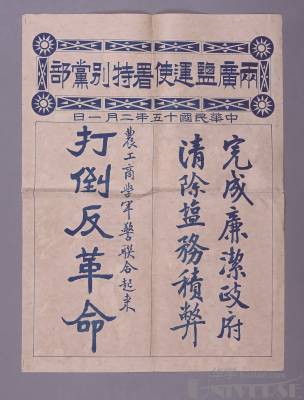 兩廣鹽運使署特別黨部
中華民國十五年二月一日
完成廉潔政府
清除鹽務積弊
農工商學軍警聯合起來
打倒反革命